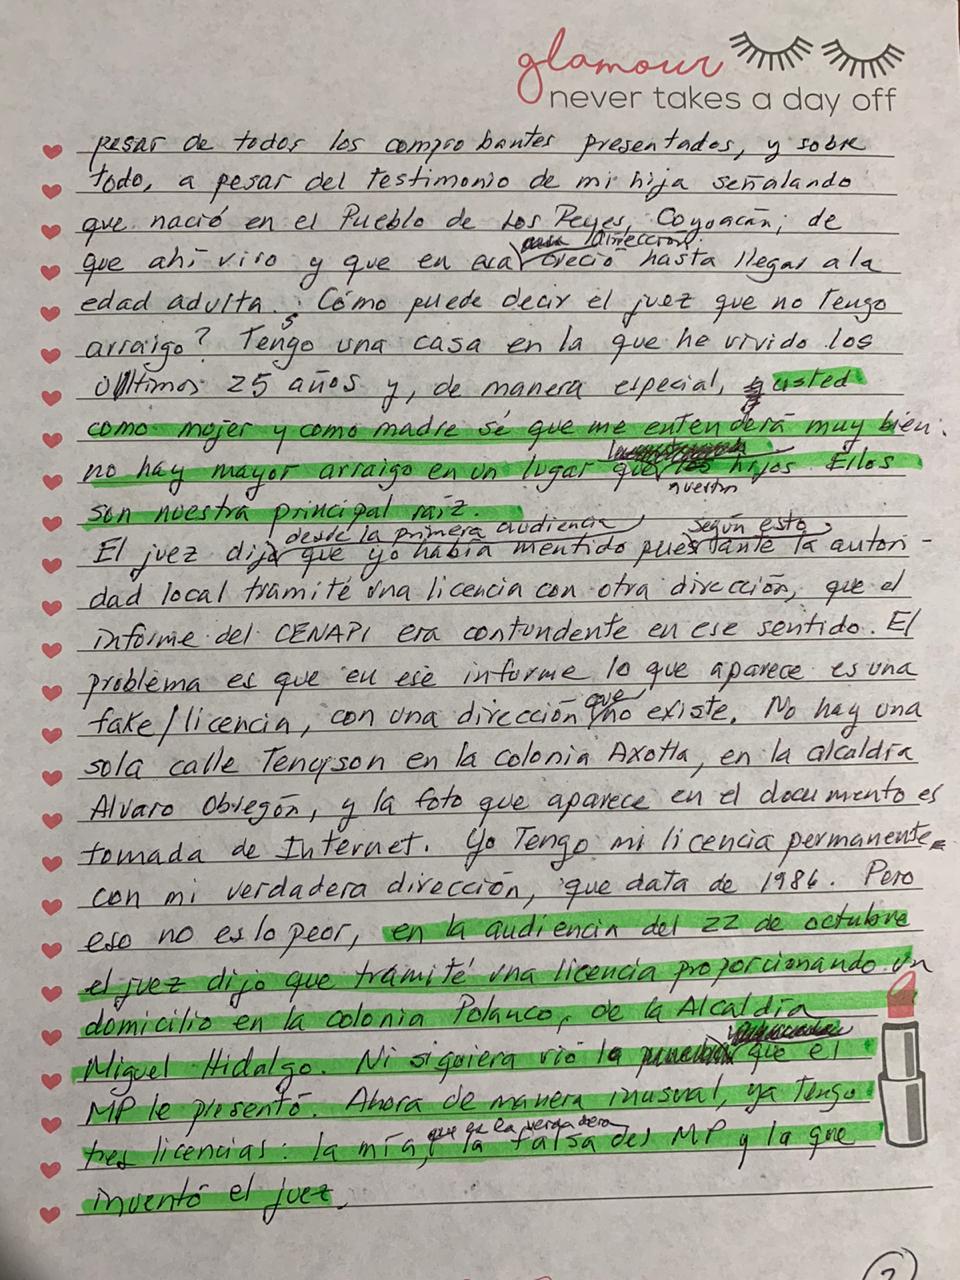 glamour
never takes a day off
pesar de todos los comprobantes presentados, y sobre
todo, a pesar del testimonio de mi hija señalando
que nació en el Pueblo de Los Reyes, Coyoacán; de
que ahí vivo y que en esa dirección creció hasta llegar a la
edad adulta. ¿Cómo puede decir el juez que no tengo
arraigo? Tengo una casa en la que he vivido los
últimos 25 años y, de manera especial, usted
como mujer y como madre sé que me entenderá muy bien:
no hay mayor arraigo en un lugar que nuestros hijos. Ellos
son nuestra principal raíz.
El juez dijo desde la primera audiencia que yo había mentido pues según esto ante la autori-
dad local tramité una licencia con otra dirección, que el
informe del CENAPI era contundente en ese sentido. El
problema es que en ese informe lo que aparece es una
fake/licencia, con una dirección que no existe. No hay una
sola calle Tenyson en la colonia Axotla, en la alcaldía
Alvaro Obregón, y la foto que aparece en el documento es
tomada de Internet. Yo Tengo mi licencia permanente
con mi verdadera dirección, que data de 1986. Pero
eso no es lo peor, en la audiencia del 22 de octubre
el juez dijo que tramité una licencia proporcionando un
domicilio en la colonia Polanco, de la Alcaldía
Miguel Hidalgo. Ni siquiera vió la que el
MP le presentó. Ahora de manera inusual, ya tengo
tres licencias: la mía, que es la verdadera, la falsa del MP y la que
inventó el juez.